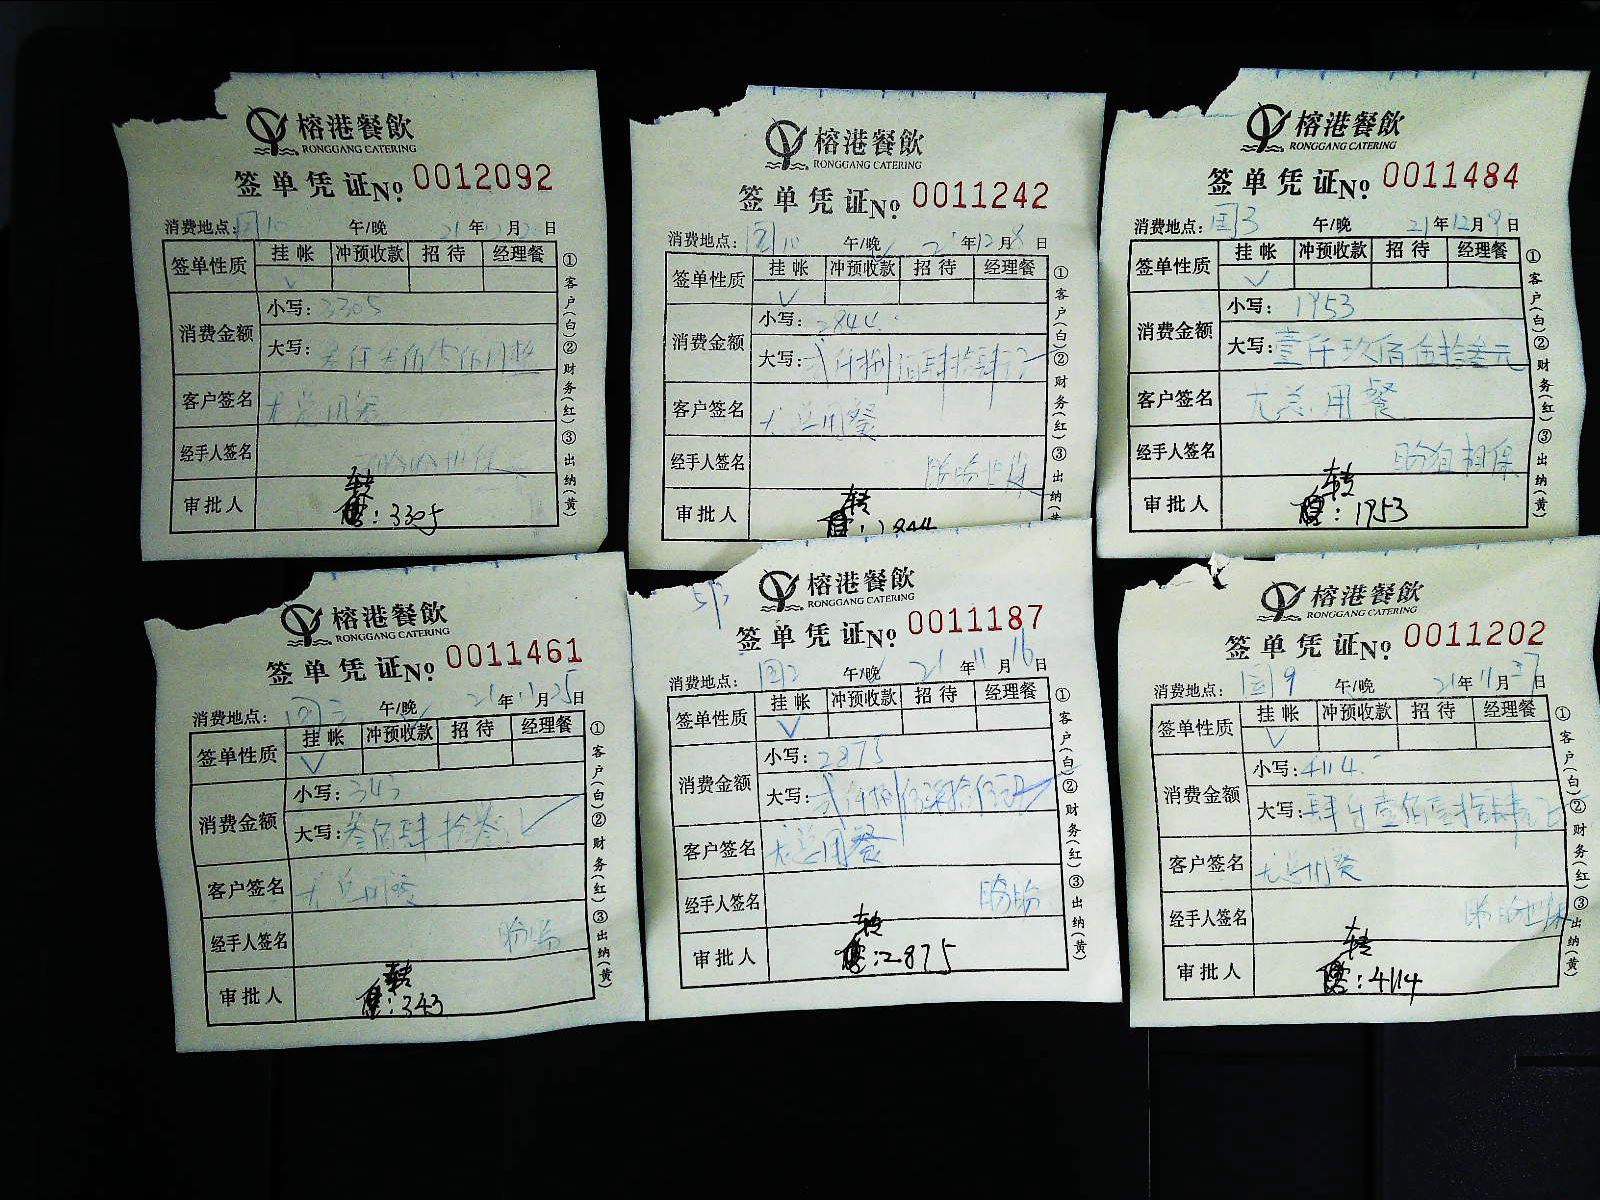 榕港餐飲
RONGGANG CATERING
签单凭证No. 0012092
消费地点: 午/晚 21年12月 日
签单性质 挂帐 冲预收款 招待 经理餐
消费金额 小写: 3305
大写:
客户签名 尤总用餐
经手人签名
审批人 转 3305
①客户(白)②财务(红)③出纳(黄)
榕港餐飲
RONGGANG CATERING
签单凭证No. 0011242
消费地点: 午/晚 21年12月8日
签单性质 挂帐 冲预收款 招待 经理餐
消费金额 小写: 2844.
大写: 贰仟捌佰肆拾肆元
客户签名 尤总用餐
经手人签名
审批人 转 2844
①客户(白)②财务(红)③出纳(黄
榕港餐飲
RONGGANG CATERING
签单凭证No. 0011484
消费地点: 国3 午/晚 21年12月9日
签单性质 挂帐 冲预收款 招待 经理餐
消费金额 小写: 1953
大写: 壹仟玖佰伍拾叁元
客户签名 尤总用餐
经手人签名
审批人 转 : 1953
①客户(白)②财务(红)③出纳(黄)
榕港餐飲
RONGGANG CATERING
签单凭证No. 0011461
消费地点: 午/晚 21年11月25日
签单性质 挂帐 冲预收款 招待 经理餐
消费金额 小写: 343
大写: 叁佰肆拾叁
客户签名 尤总用餐
经手人签名 盼盼
审批人 转 : 343
①客户(白)②财务(红)③出纳(黄)
榕港餐飲
RONGGANG CATERING
签单凭证No. 0011187
消费地点: 国2 午/晚 21年11月16日
签单性质 挂帐 冲预收款 招待 经理餐
消费金额 小写: 2875
大写: 贰仟捌佰柒拾伍元
客户签名 尤总用餐
经手人签名 盼盼
审批人 转 : 2875
①客户(白)②财务(红)③出纳(黄)
榕港餐飲
RONGGANG CATERING
签单凭证No. 0011202
消费地点: 国9 午/晚 21年11月 日
签单性质 挂帐 冲预收款 招待 经理餐
消费金额 小写: 4114.
大写: 肆仟壹佰壹拾肆元
客户签名 尤总用餐
经手人签名
审批人 转 : 4114
①客户(白)②财务(红)③出纳(黄)